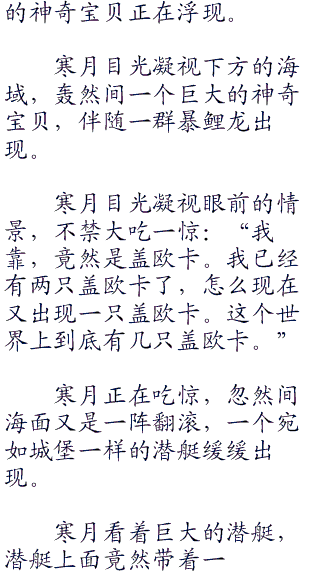 的神奇宝贝正在浮现。
寒月目光凝视下方的海
域，轰然间一个巨大的神奇
宝贝，伴随一群暴鲤龙出
现。
寒月目光凝视眼前的情
景，不禁大吃一惊：“我
靠，竟然是盖欧卡。我已经
有两只盖欧卡了，怎么现在
又出现一只盖欧卡。这个世
界上到底有几只盖欧卡。”
寒月正在吃惊，忽然间
海面又是一阵翻滚，一个宛
如城堡一样的潜艇缓缓出
现。
寒月看着巨大的潜艇，
潜艇上面竟然带着一